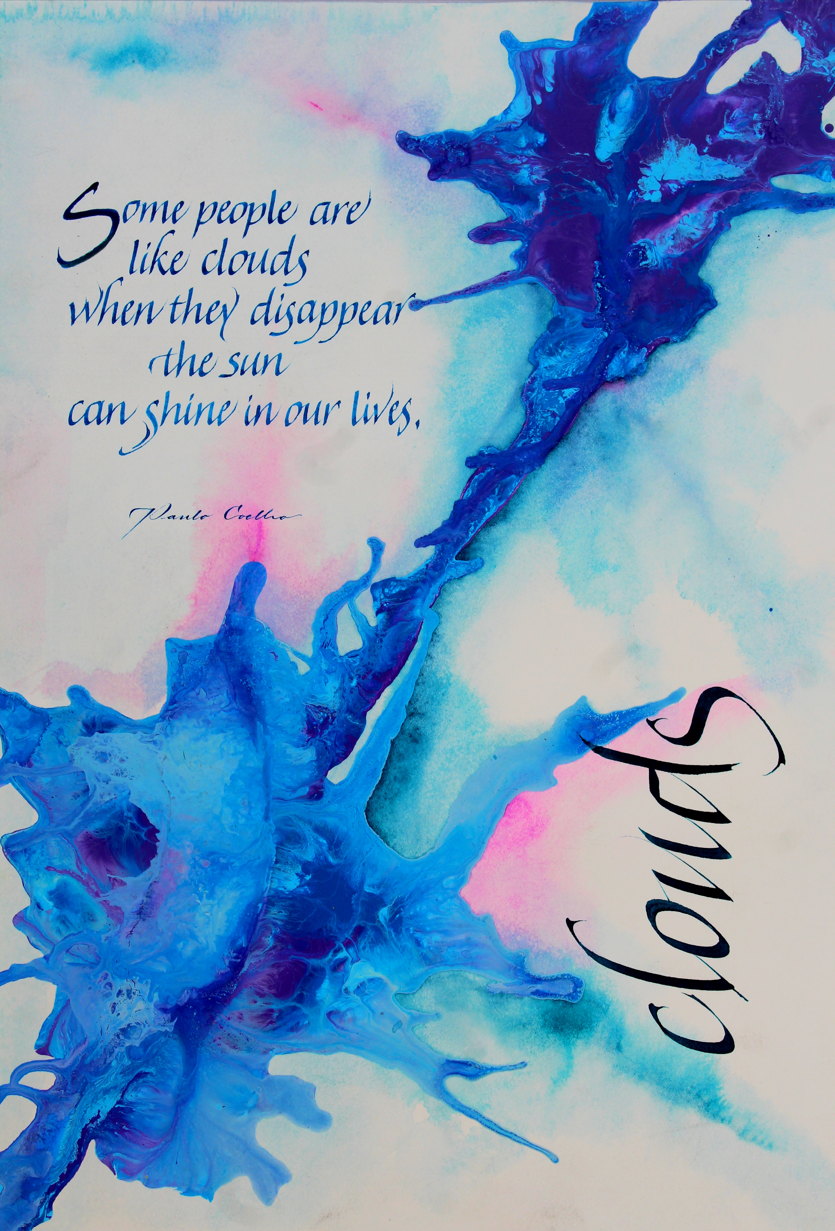 Some people are
like clouds
when they disappear
the sun
can shine in our lives.
Paulo Coelho
clouds